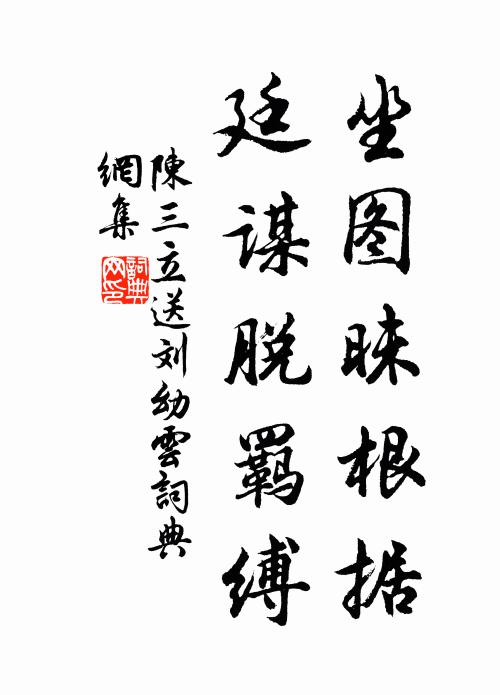 坐图昧根据
廷谋脱羁缚
陳三立送刘幼雲詞典
網集
詞典
网印